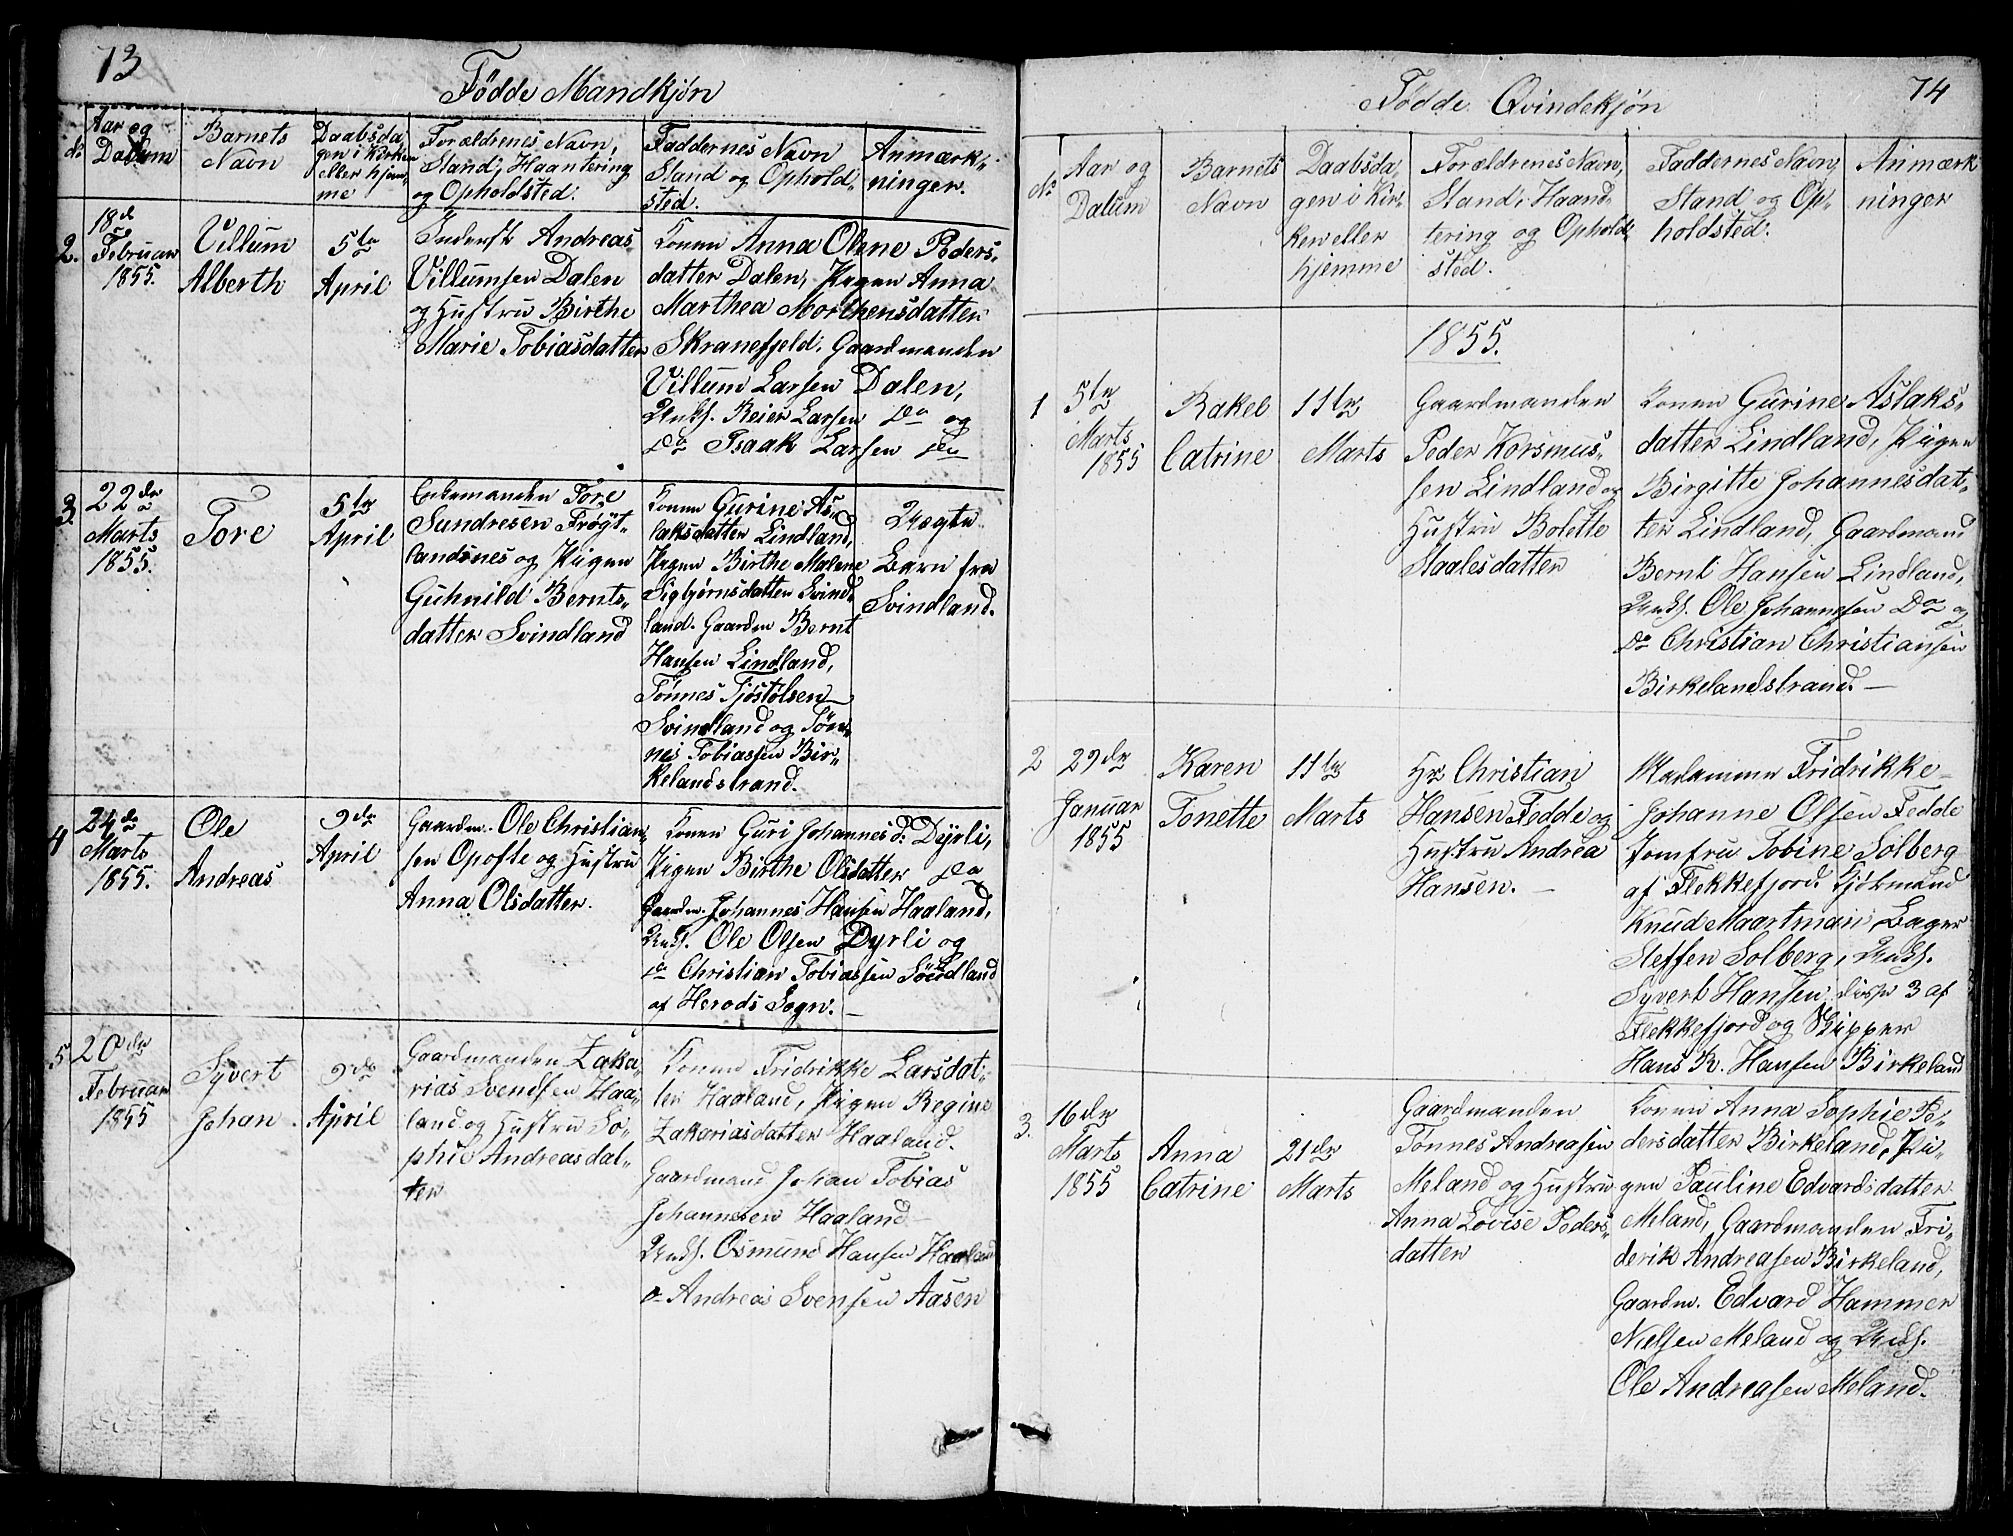 73
Fødde Mandkjøn
No
Aar og
Datum
Barnets
Navn
Daabsda-
gen i Kirken
eller hjem-
me
Forældrenes Navn,
Stand, Haantering
og Opholdsted.
Faddernes Navn
Stand og Ophold-
sted.
Anmærk-
ninger.
2.
18de
Februar
1855.
Villum
Alberth
5te
April
Inderst Andreas
Villumsen Dalen
og Hustru Birthe
Marie Tobiasdatter
Konen Anna Olene Peders-
datter Dalen, Pigen Anna
Marthea Morthensdatter
Skranefjeld. Gaardmanden
Villum Larsen Dalen,
Unks. Reier Larsen Do og
Do Isaak Larsen Do
3.
22de
Marts
1855.
Tore
5te
April
Enkemanden Tore
Sundresen Frøyt-
landsnes og Pigen
Guhnild Bernts-
datter Svindland
Konen Gurine As-
laksdatter Lindland,
Pigen Birthe Malene
Sigbjørnsdatter Svind-
land. Gaardm Bernt
Hansen Lindland,
Tønnes Tjøstolsen
Svindland og Tøn-
nes Tobiassen Bir-
kelandstrand.
Uægte
Barn fra
Svindland.
4
24de
Marts
1855.
Ole
Andreas
9de
April
Gaardm. Ole Christian-
sen Opofte og Hustru
Anna Olsdatter.
Konen Guri Johannesd. Dyrli,
Pigen Birthe Olsdatter Do
Gaardm. Johannes Hansen Haaland,
Unks. Ole Olsen Dyrli og
Do Christian Tobiassen
af Herods Sogn.
5
20de
Februar
1855
Syvert
Johan.
9de
April
Gaardmanden Zaka-
rias Svendsen Haa-
land og Hustru So-
phie Andreasdat-
ter
Konen Fridrikke Larsdat-
ter Haaland, Pigen Regine
Zakariasdatter Haaland.
Gaardmand Johan Tobias
Johannesen Haaland
Unks. Osmund Hansen Haaland
Do Andreas Svensen Aasen
74
Fødde Qvindekjøn
No
Aar og
Datum
Barnets
Navn
Daabsda-
gen i Kir-
ken eller
hjemme
Forældrenes Navn,
Stand, Haand-
tering og Ophold-
sted.
Faddernes Navn,
Stand og Op-
holdsted.
Anmærk
ninger
1855.
1
5te
Marts
1855
Rakel
Catrine
11te
Marts
Gaardmanden
Peder Korsmus-
sen Lindland og
Hustru Bolette
Staalesdatter
Konen Gurine Aslaks-
datter Lindland, Pigen
Birgitte Johannesdat-
ter Lindland, Gaardmand
Bernt Hansen Lindland,
Unks. Ole Johannesen Do og
Do Christian Christiansen
Birkelandstrand.
2
29de
Januar
1855
Karen
Tonette
11te
Marts
Hr Christian
Hansen Fedde og
Hustru Andrea
Hansen.
Madamme Fridrikke
Johanne Olsen Fedde
Jomfru Tobine Solberg
af Flekkefjord. Sjökmand
Knud Maartman, Bager
Steffen Solberg, Unks.
Syvert Hansen, disse 3 af
Flekkefjord og Skipper
Hans R. Hansen Birkeland
3.
16de
Marts
1855
Anna
Catrine
21de
Marts
Gaardmanden
Tønnes Andreasen
Meland og Hustru
Anna Lovise Peders-
datter
Konen Anna Sophie Pe-
dersdatter Birkeland, Pi-
gen Pauline Edvardsdatter
Meland, Gaardmanden Fri-
derik Andreasen Birkeland,
Gaardm. Edvard Hammer
Nielsen Meland og Unks.
Ole Andreasen Meland.